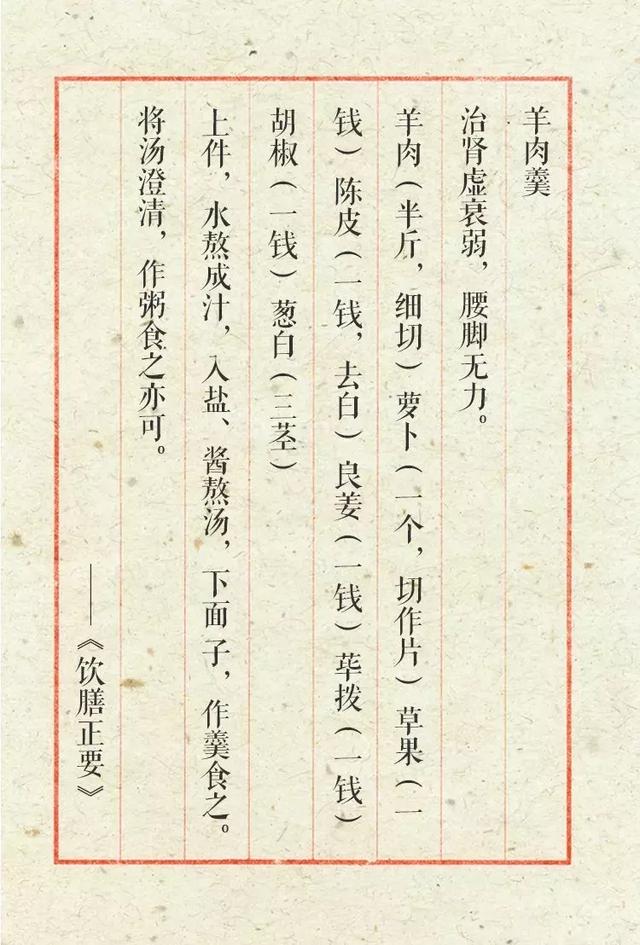 羊肉羹
治肾虚衰弱，腰脚无力。
羊肉（半斤，细切）萝卜（一个，切作片）草果（一
钱）陈皮（一钱，去白）良姜（一钱）荜拨（一钱）
胡椒（一钱）葱白（三茎）
上件，水熬成汁，入盐、酱熬汤，下面子，作羹食之。
将汤澄清，作粥食之亦可。
——《饮膳正要》